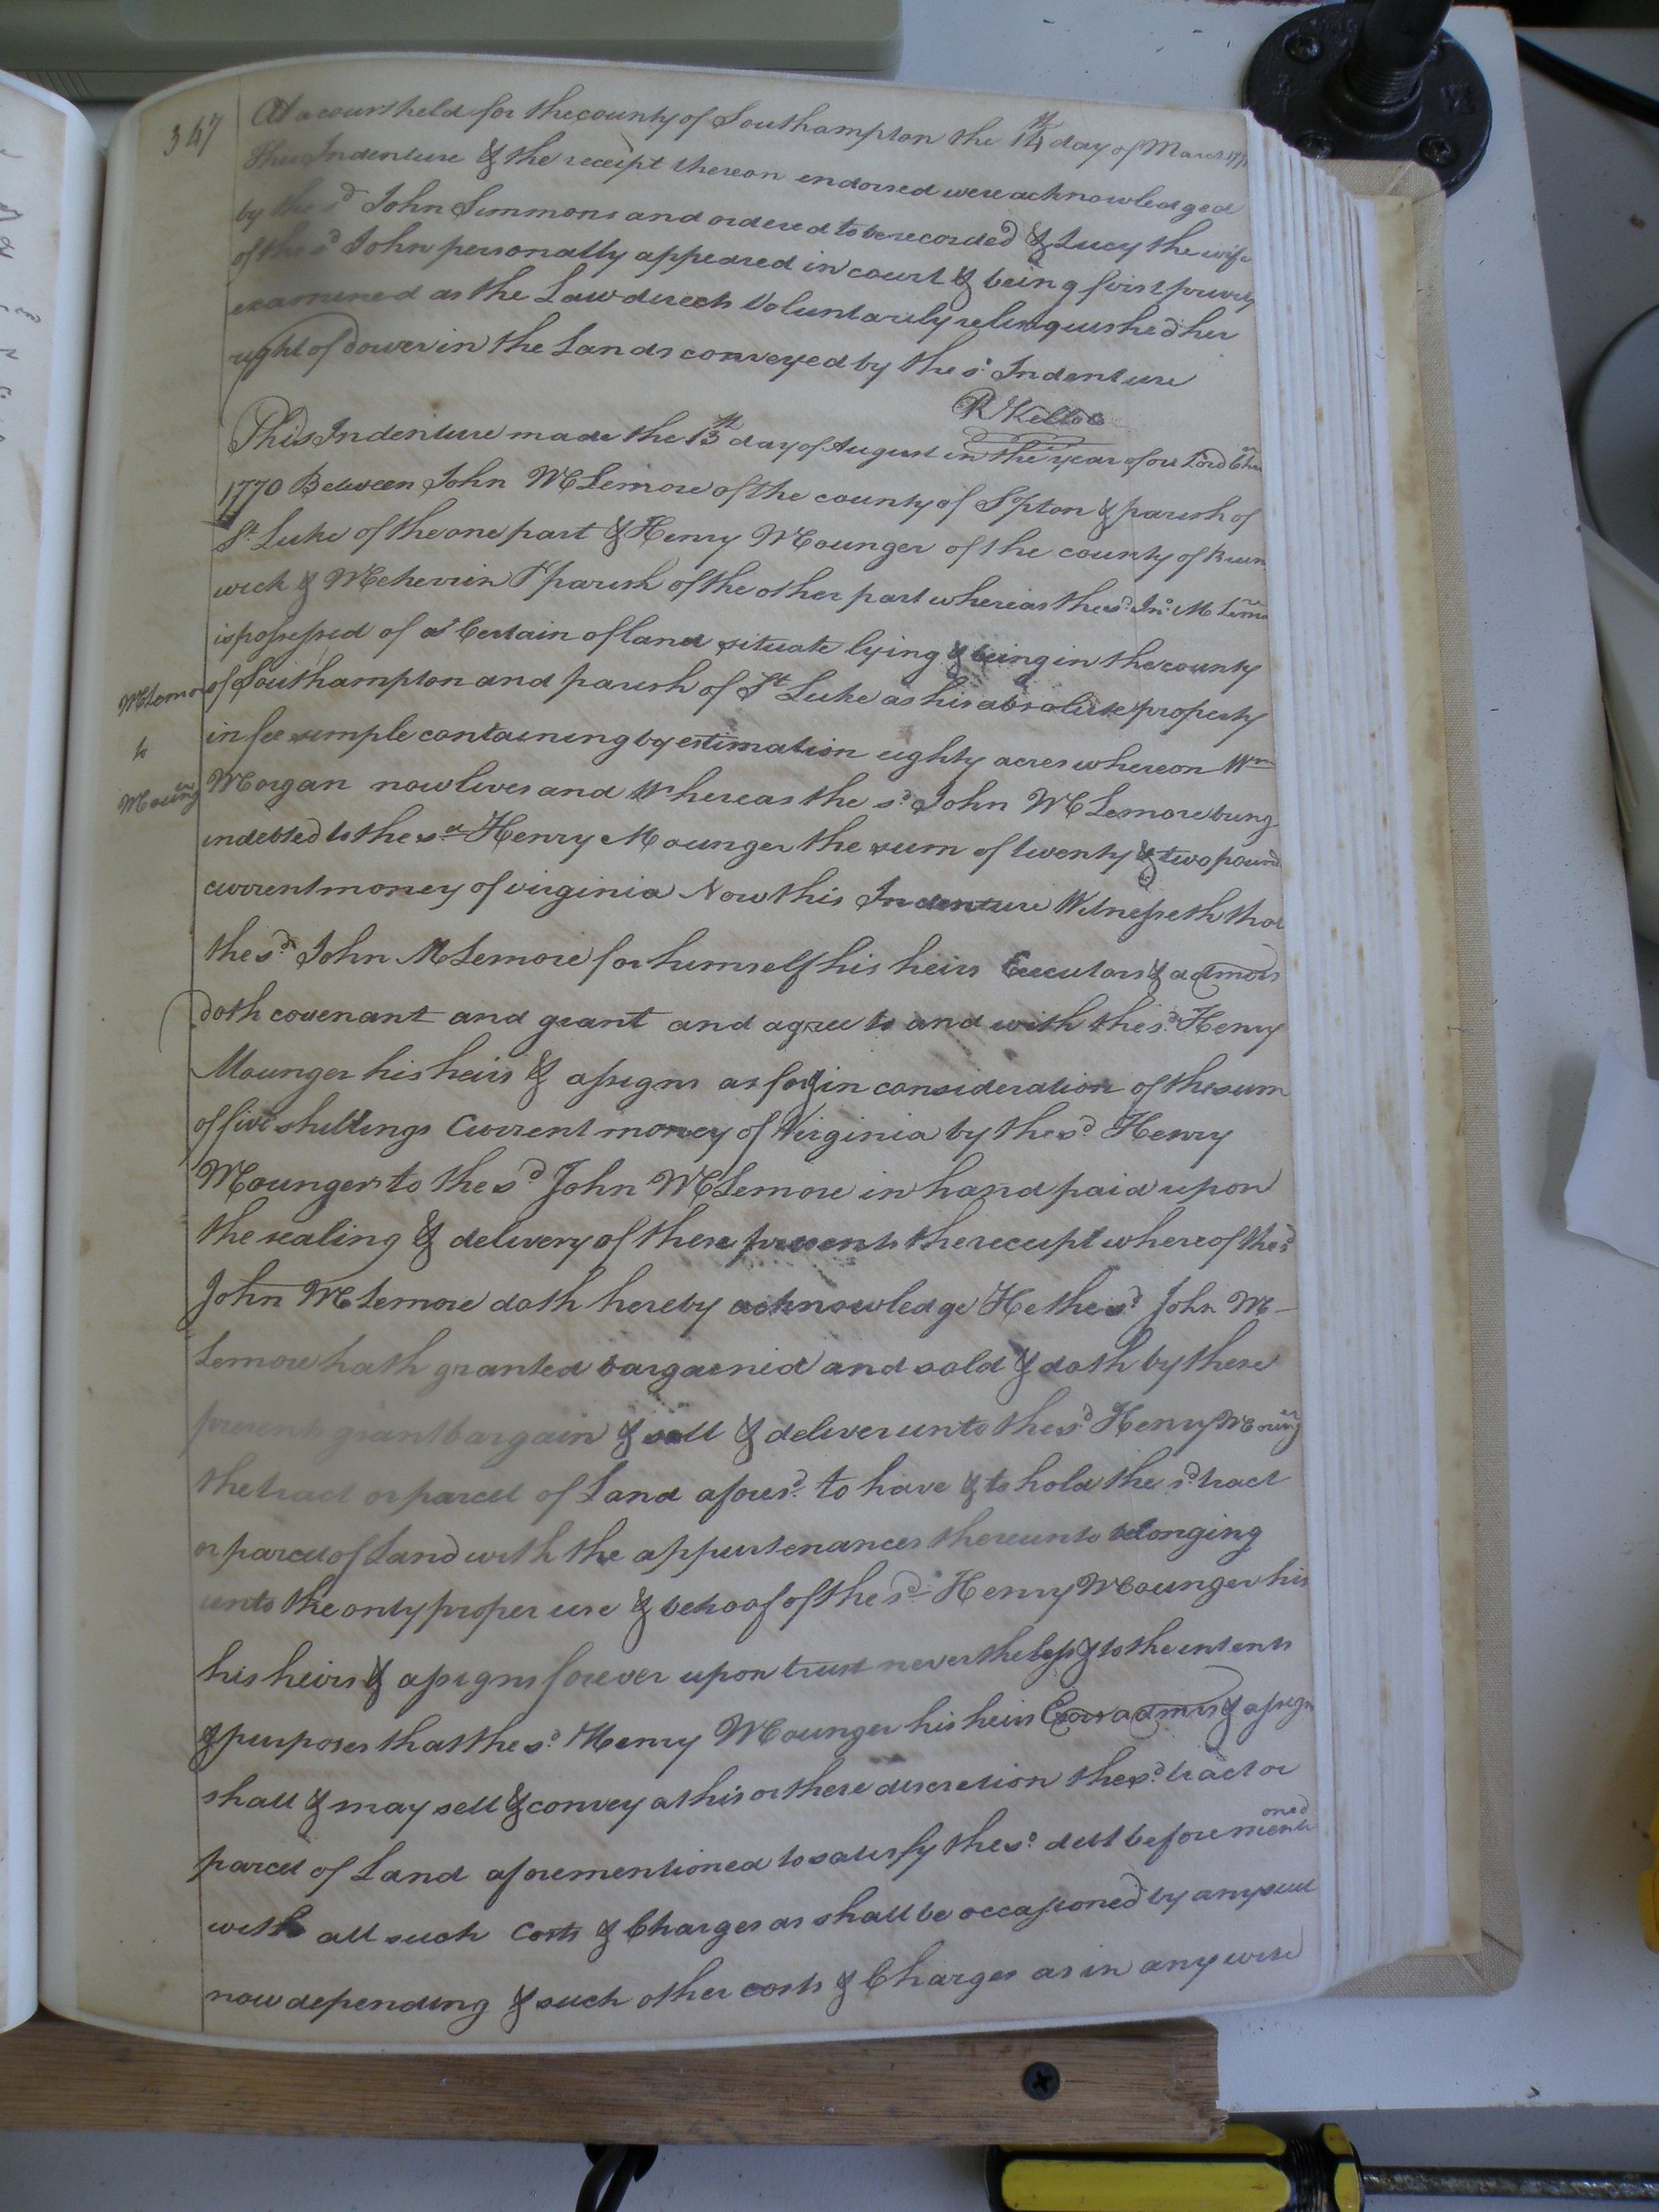 347
At a court held for the county of Southampton the 14th day of March 1771
This Indenture & the receipt thereon endorsed were acknowledged
by the sd John Simmons and ordered to be recorded & Lucy the wife
of the sd John personally appeared in court & being first privily
examined as the Law directs Voluntarily relinquished her
right of dower in the Lands conveyed by the sd Indenture
R Kello
This Indenture made the 13th day of August in the year of our Lord
1770 Between John McLemore of the county of S'pton & parish of
St Luke of the one part & Henry Mounger of the county of Brun
wick & Meherrin parish of the other part whereas the sd Jno McLemre
is possessed of a Certain of land situate lying & being in the county
McLemore
to
Mounger
of Southampton and parish of St Luke as his absolute property
in fee simple containing by estimation eighty acres whereon Wm
Morgan now lives and Whereas the sd John McLemore being
indebted to the sd Henry Mounger the sum of twenty & two pound
current money of virginia Now this Indenture Witnesseth that
the sd John McLemore for himself his heirs Executors & admors
doth covenant and grant and agree to and with the sd Henry
Mounger his heirs & assigns as for & in consideration of the sum
of five shillings Current money of Virginia by the sd Henry
Mounger to the sd John McLemore in hand paid upon
the sealing & delivery of these presents the receipt whereof the sd
John McLemore doth hereby acknowledge He the sd John Mc-
Lemore hath granted bargained and sold & doth by these
presents grant bargain & sell & deliver unto the sd Henry Mounger
the tract or parcel of Land aforesd. to have & to hold the sd tract
or parcel of Land with the appurtenances thereunto belonging
unto the only proper use & behoof of the sd Henry Mounger his
his heirs & assigns forever upon trust nevertheless & to the intents
& purposes that the sd Henry Mounger his heirs Exors admrs & assigns
shall & may sell & convey at his or there discretion the sd tract or
parcel of Land aforementioned to satisfy the sd debt before mentioned
with all such Costs & Charges as shall be occasioned by any suit
now depending & such other costs & Charges as in any wise